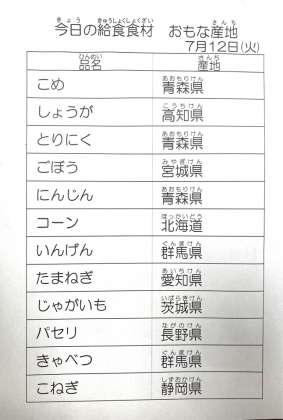 今日の給食食材 おもな産地
7月12日(火)
品名 産地
こめ 青森県
しょうが 高知県
とりにく 青森県
ごぼう 宮城県
にんじん 青森県
コーン 北海道
いんげん 群馬県
たまねぎ 愛知県
じゃがいも 茨城県
パセリ 長野県
きゃべつ 群馬県
こねぎ 静岡県